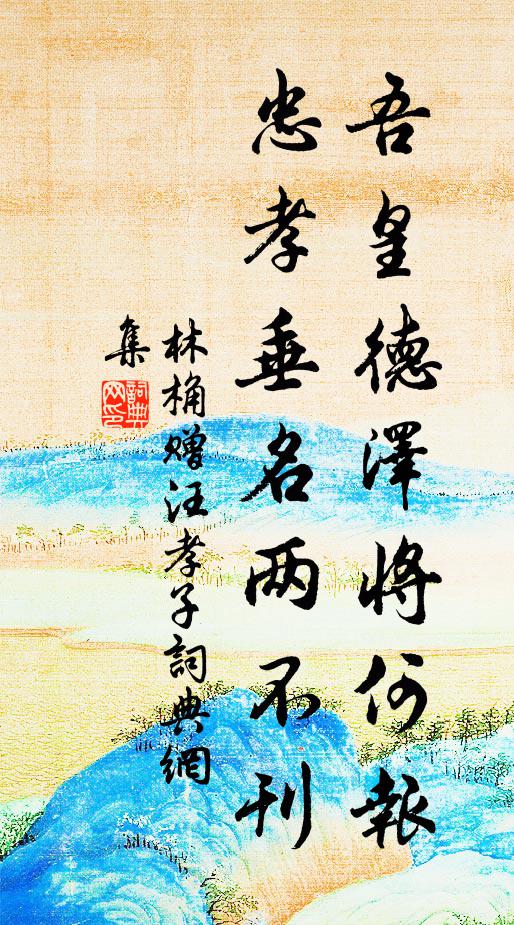 吾皇德澤將何報
忠孝垂名两不刊
林桷贈汪孝子詞典網
集
詞典網印